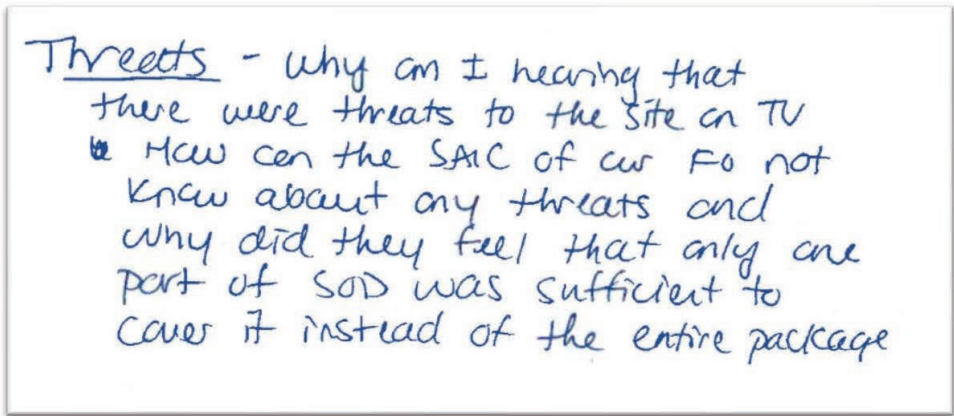 Threats - Why am I hearing that
there were threats to the site on TV
How can the SAIC of our FO not
know about any threats and
why did they feel that only one
part of SOD was sufficient to
cover it instead of the entire package